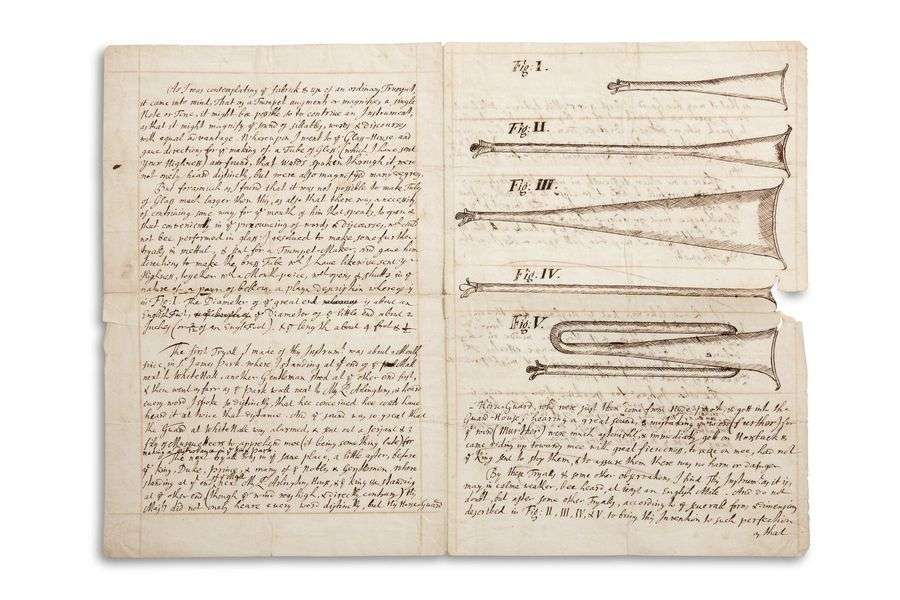 As I was contemplating yᵉ fabrick & use of an ordinary Trumpet,
it came into mind, That as a Trumpet augments or magnifies a single
Note or Tone, it might be possible so to contrive an Instrument,
as that it might magnify yᵉ sound of sillables, words & discourses
with equal advantage. Whereupon I went to yᵉ Glass-House, and
gave directions for yᵉ making of a Tube of Glass (which I have sent
your Highness) and found, that words spoken through it, were
not onely heard distinctly, but were also magnified many degrees.
But forasmuch as I found that it was not possible to make Tubes
of Glass much larger then this, as also that there was a necessity
of contriving some way for yᵉ mouth of him that speaks, to open & shut
conveniently in yᵉ pronouncing of words & discourses,
not bee performed in glass, I resolved to make some further
tryals in mettal, & sent for a Trumpet-Maker, and gave him
directions to make the brass Tube wᶜʰ I have likewise sent yʳ
Highness, together wᵗʰ a Mouth-peice, wᶜʰ opens & shutts in yᵉ
nature of a payre of bellows, a playn description whereof is
in Fig. I. The Diameter of yᵉ great end is about an
English Foot, yᵉ Diameter of yᵉ little end about 2
Inches (or of an English Foot), & yᵉ length about 4 foot &
The first Tryal I made of this Instrumᵗ was about a Month
since, in Sᵗ James Park where I standing at yᵉ one end of yᵉ Mall
next to White Hall, another Gentleman stood at yᵉ other end first,
& then went as farr as yᵉ Park wall next to My L. Arlingtons, & heard
every word I spoke so distinctly that hee conceived hee could have
heard it at twice that distance. And yᵉ sound was so great that
the Guard at White Hall was alarmed, & sent out a serjeant &
fyle of Musqueteers to apprehend mee (it being something late) for
making a disturbance in yᵉ Park.
The next tryal was in yᵉ same place, a little after, before
yᵉ King, Duke, Prince, & many of yᵉ Nobles, & Gentlemen, where
standing at yᵉ end of yᵉ Mall next L. Arlingtons House, & yᵉ King &c standing
at yᵉ other end (though yᵉ wind was high, & directly contrary) his
Majᵗʸ did not onely heare every word distinctly, but his Horse-Guard
Fig: I.
Fig: II.
Fig: III.
Fig: IV.
Fig: V.
- Horse-Guard, who were just then come from Hide-Park & gott into the
Guard-House, hearing a great sound, & mistaking yᵉ word (further) for
yᵉ word (Murther) were much astonish'd, & immediately gott on Horsback &
came riding up towards mee with great fierceness, to seize on mee, had not
yᵉ King sent to stay them, & to assure them there was no harm or danger
By these Tryals & some other observations, I find this Instrumᵗ, as it is,
may in calme weather, bee heard at least an English Mile. And do not
doubt, but after some other Tryals, according to yᵉ severall forms & dimensions
described in Fig: II, III, IV, & V. to bring this Invention to such perfection
as that